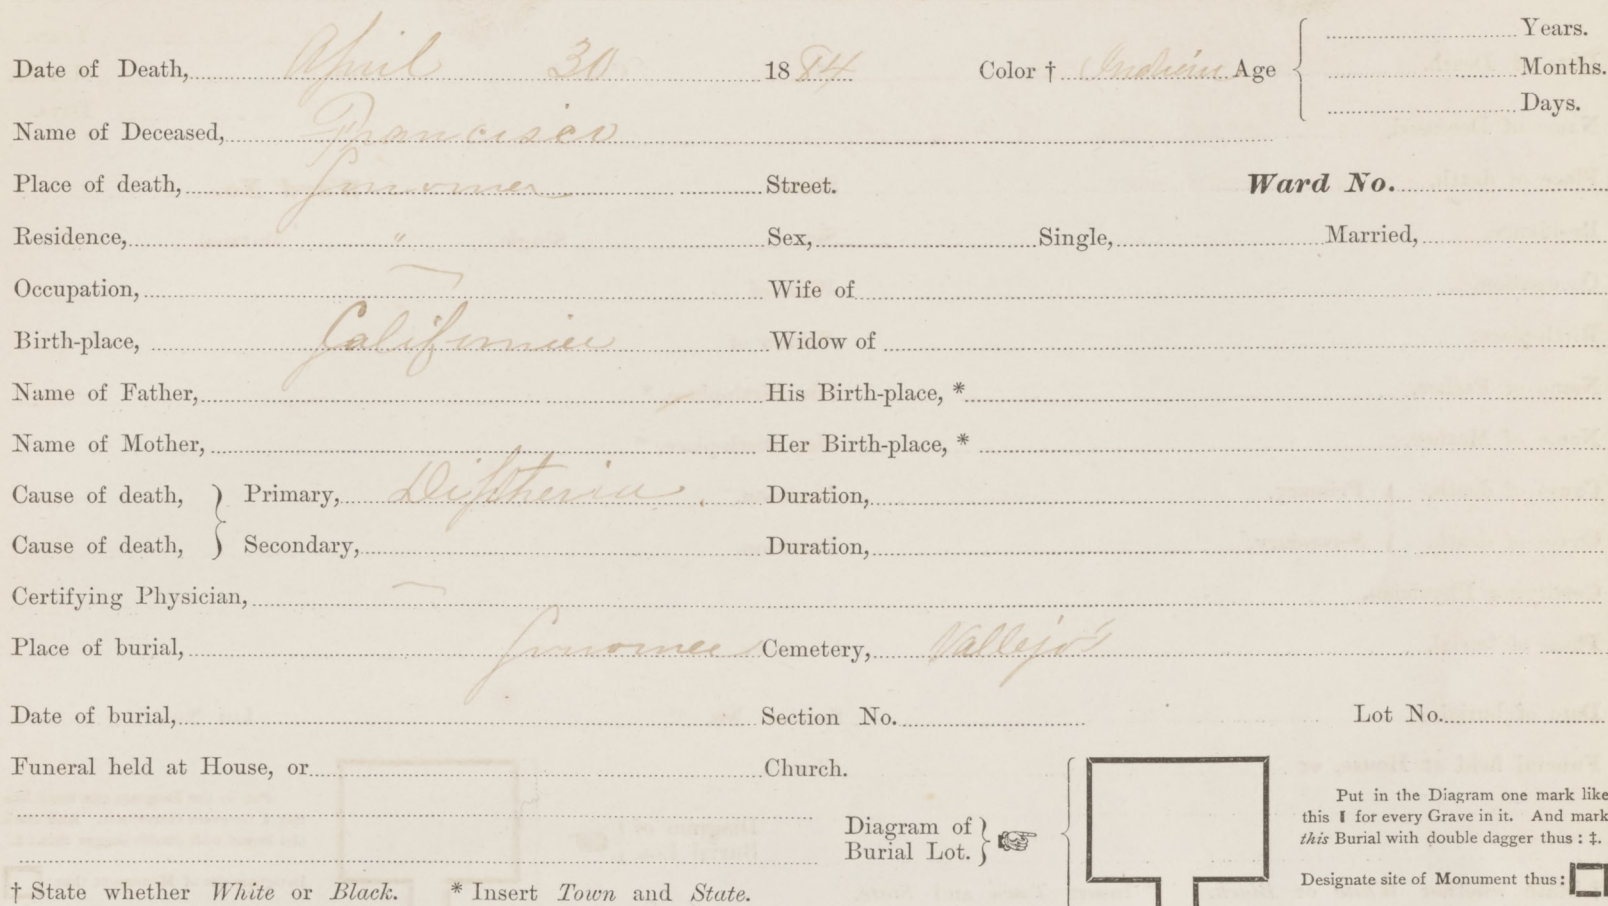 Date of Death, April 30 1884 Color † Indian Age { Years.
Months.
Days.
Name of Deceased, Francisco
Place of death, Sonoma Street. Ward No.
Residence, " Sex, Single, Married,
Occupation, Wife of
Birth-place, California Widow of
Name of Father, His Birth-place, *
Name of Mother, Her Birth-place, *
Cause of death, } Primary, Diptheria. Duration,
Cause of death, } Secondary, Duration,
Certifying Physician,
Place of burial, Sonoma Cemetery, Vallejo's
Date of burial, Section No. Lot No.
Funeral held at House, or Church.
Diagram of
Burial Lot. }☞{
Put in the Diagram one mark like
this ▮ for every Grave in it. And mark
this Burial with double dagger thus : ‡.
Designate site of Monument thus :
† State whether White or Black. * Insert Town and State.